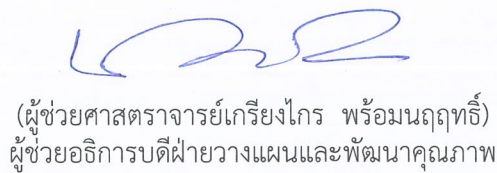 (ผู้ช่วยศาสตราจารย์เกรียงไกร พร้อมนฤฤทธิ์)
ผู้ช่วยอธิการบดีฝ่ายวางแผนและพัฒนาคุณภาพ